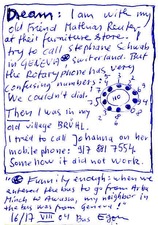 Dream: I am with my
old friend Mathias Reuter
at their furniture store. I
try to call Stephane Schwab
in GENEVA Switzerland. But
the Rotary phone has very
confusing numbers:
We couldn't.
110
Then I was in my
old village BRUHL.
I tried to call Johanna on her
mobile phone: 917 881 7554
Somehow it did not work.
Funnily enough: when we
entered the bus to go from Arba
Minch to Awassa, my neighbor in
the bus was from Geneva!
16/17 VIII 04 Bus